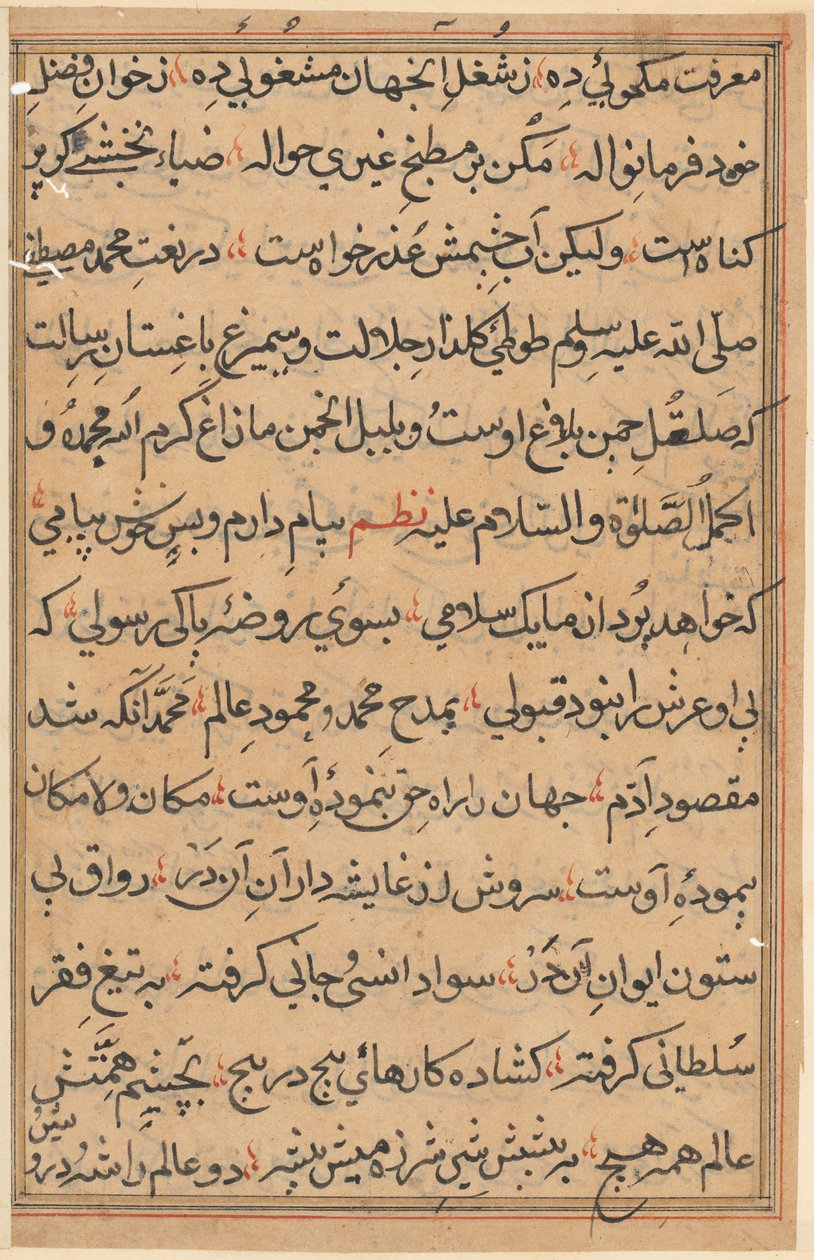 معرفت مکحولئ ده ؛ ز شغلِ آنجهان مشغولي ده ؛ ز خوانِ فضلِ
خود فرما نواله ؛ مکن بر مطبخِ غیري حواله ؛ ضیاء نخشبے کو پر
کناه است ؛ ولیکن آب چشمش عذر خواه ست ؛ در نعتِ محمد مصطفی
صلّی الله علیه وسلم طوطئ کلذارِ جلالت و سیمرغ باغستانِ رسالت
که چمن بلاغ اوست و بلبل انجمن ما زاغ کرم الله محمده و
اکمل الصَّلوٰة والسّلام علیه نظم پیامِ دارم و بس خوش پیامي ؛
که خواهد بُرد از ما یک سلامي ؛ بسوئ روضئه پاکی رسولي ؛ که
بي او عرش را نبود قبولي ؛ بمدح محمد و محمودِ عالم ؛ محمَّد آنکه شد
مقصودِ آدم ؛ جهان را راه حق بنمودهٔ اوست ؛ مکان و لامکان
پیمودهٔ اوست ؛ سروش از غایشه دارانِ آن در ؛ رواق بي
ستون ایوانِ آن در ؛ سواد انسی و جاني کرفته ؛ به تیغِ فقر
سُلطانی کرفته ؛ کشاده کارهائ پیج در پیج ؛ بچشمِ همَّتش
عالم همه هیچ ؛ به پیشش شیر شرزه میش پیشه ؛ دو عالم را